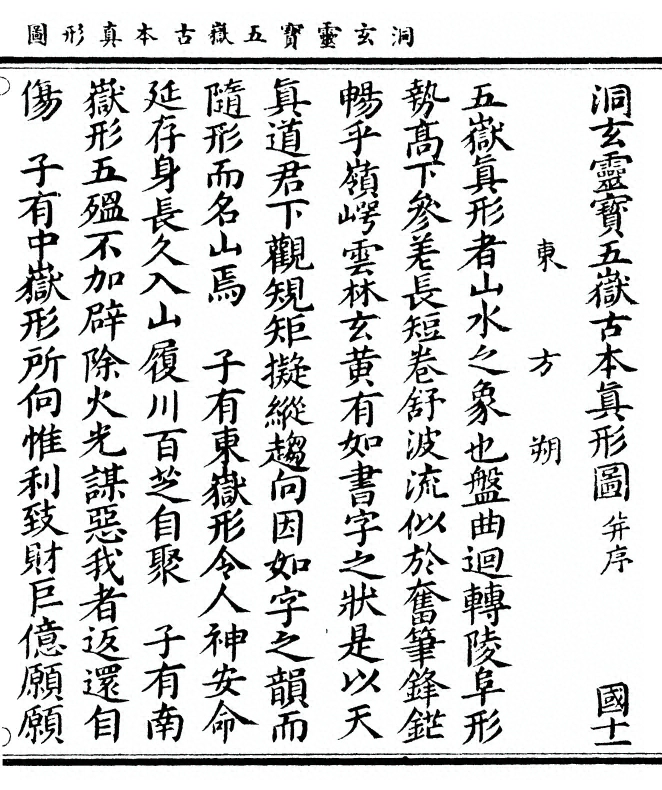 洞玄靈寶五嶽古本真形圖
洞玄靈寶五嶽古本眞形圖 并序 國十一
東方朔
五嶽眞形者山水之象也盤曲迴轉陵阜形
勢高下參差長短卷舒波流似於奮筆鋒鋩
暢乎嶺崿雲林玄黃有如書字之狀是以天
眞道君下觀規矩擬縱趨向因如字之韻而
隨形而名山焉 子有東嶽形令人神安命
延存身長久入山履川百芝自聚 子有南
嶽形五殟不加辟除火光謀惡我者返還自
傷 子有中嶽形所向惟利致財巨億願願